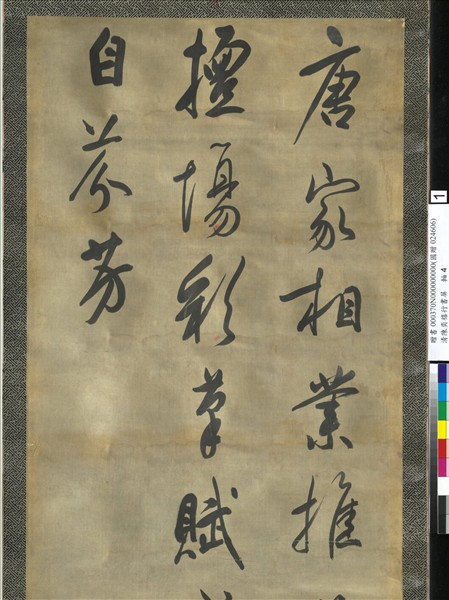 唐家相業推
擅場彩筆賦
自芬芳
1
贈書000370N000000000(國贈 024606)
清陳奕禧行書屏 軸 4